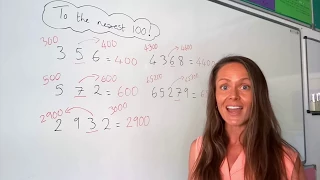 To the nearest 100!
300 400 4300 4400
3 5 6 = 400 4 3 6 8 = 4400
500 600
5 7 2 = 600 6 5 2 7 9 =
2900 3000
2 9 3 2 = 2900